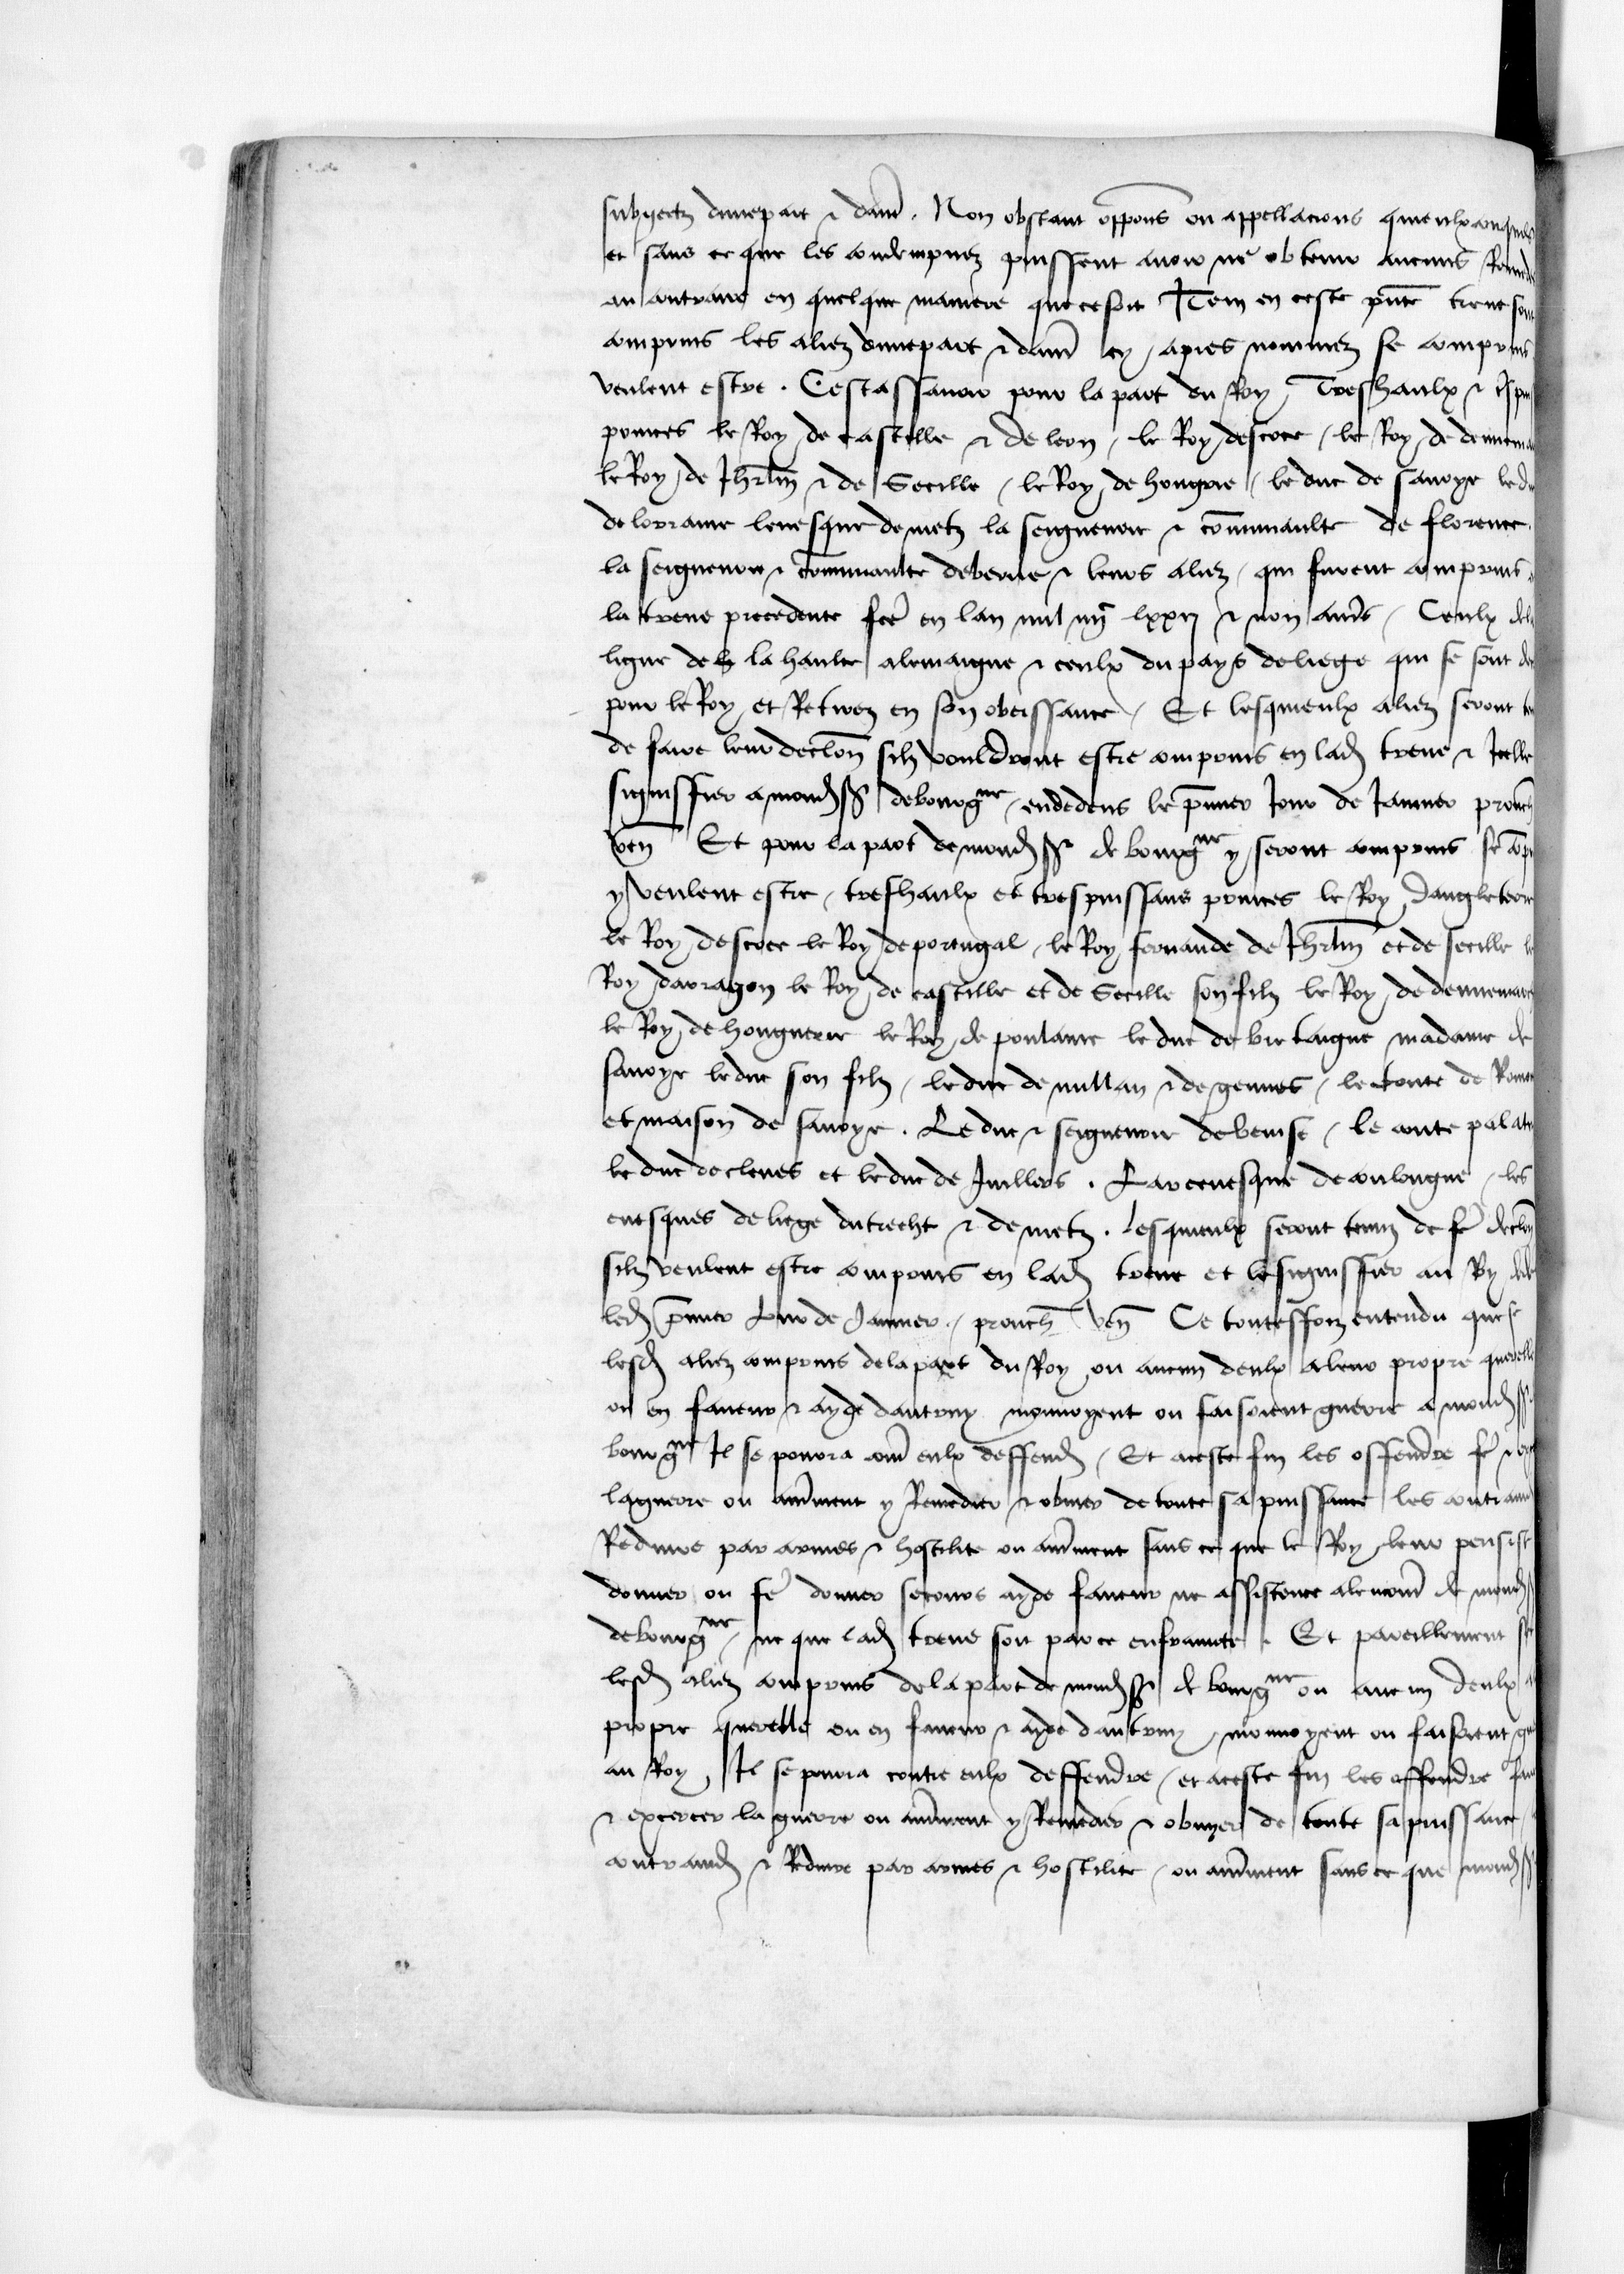 subgectz dunepart ⁊ dautre. Non obstant opposicions ou appellacions quieulxconques
et sans ce que les condempnez puissent avoir ne obtenir aucuns Remede
au contraire en quelque maniere que ce soit Item en ceste pnte treve sont
comprins les aliez dunepart ⁊ dautre cy apres nommez se comprins
veulent estre. Cestassavoir pour la part du Roy Treshaulx ⁊
princes le Roy de castille ⁊ de leon, le Roy descoce, le Roy de dennemarc
le Roy de Jhrlm ⁊ de Secille, le Roy de hongrie, le duc de savoye le duc
de lorraine levesque de metz la seigneurie ⁊ communaulte de florence.
la seigneurie ⁊ communaulte de berne ⁊ leurs aliez, qui furent comprins
la treve precedente fce en lan mil iiijc lxxij ⁊ non autres, Ceulx dela
ligue de la haulte alemaigne ⁊ ceulx du pays de liege qui se sont
pour le Roy et Retirez en son obeissance, Et lesquieulx aliez seront
de faire leur declon silz vouldront estre comprins en lad treve ⁊ Icelle
signiffier a mond sr de bourgne, endedens le pmier Jour de Janvier prouch
ven Et pour la part de mond sr de bourgne y seront comprins se
y veulent estre, treshaulx et trespuissans princes le Roy dangleterre
le Roy descoce le Roy de portugal, le Roy fernande de Jhrlm et de secille le
Roy darragon le Roy de castille et de Secille son filz le Roy de dennemarc
le Roy de honguerie le Roy de poulaine le duc de bretaigne madame de
savoye le duc son filz, le duc de millan ⁊ de gennes, le conte de Romon
et maison de savoye. Le duc ⁊ seigneurie de venise, le conte palatin
le duc de cleves et le duc de Juillers. Larcevesque de coulongne, les
evesques de liege dutrecht ⁊ de metz. lesquieulx seront tenuz de fe declon
silz veulent estre comprins en lad treve et le signiffier au Roy
led pmier Jour de Janvier, prouch ven Ce touteffoiz entendu que se
lesd aliez comprins de la part du Roy ou aucun deulx a leur propre querelle
ou en faveur ⁊ ayde dautruy mouvoyent ou faisoient guerre a mond sr
bourgne Il se pourra contre eulx deffendre, Et a ceste fin les offendre fe ⁊
la guerre ou autrement y Remedier ⁊ obvier de toute sa puissance les
Reduire par armes ⁊ hostilite ou autrement sans ce que le Roy leur
donner ou fe donner secours ayde faveur ne assistence de mond
de bourgne, ne que lad treve soit par ce enfrainte. Et pareillement se
lesd aliez comprins de la part de mond sr de bourgne ou aucun deulx
propre querelle ou en faveur ⁊ ayde dautruy, mouvoyent ou faisoient
au Roy, Il se pourra contre eulx deffendre, et a ceste fin les offendre
⁊ excercer la guerre ou autrement y Remedier ⁊ obvyer de toute sa puissance
contraind ⁊ Reduire par armes ⁊ hostilite, ou autrement sans ce que mond sr